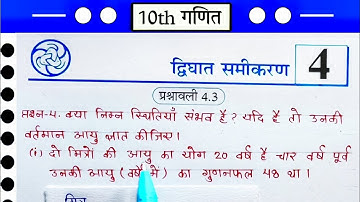 10th गणित
द्विघात समीकरण
4
प्रश्नावली 4.3
प्रश्न-4. क्या निम्न स्थितियाँ संभव है? यदि है तो उनकी
वर्तमान आयु ज्ञात कीजिए।
(i) दो मित्रों की आयु का योग 20 वर्ष है चार वर्ष पूर्व
उनकी आयु (वर्षों में) का गुणनफल 48 था।